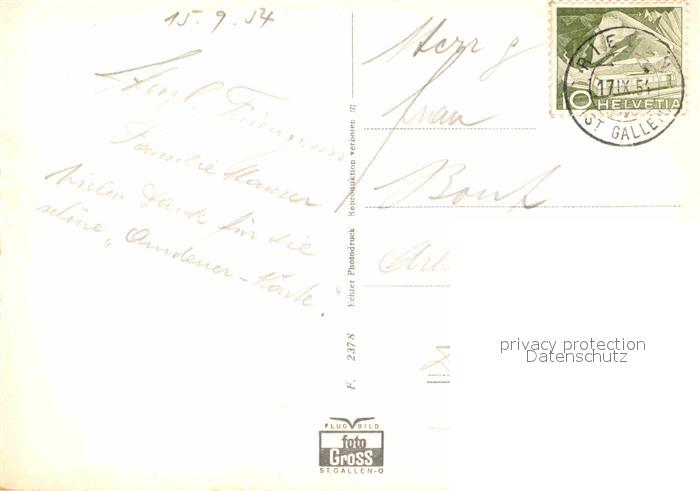 15. 9. 54
Familie Manser
vielen Dank für die
schöne „Amdener-Karte“.
F. 2378 Echter Photodruck Reproduktion verboten
FLUGBILD
foto
Gross
ST. GALLEN-O
Herrn
Frau
10 HELVETIA
17.IX.54
(ST GALLEN)
privacy protection
Datenschutz